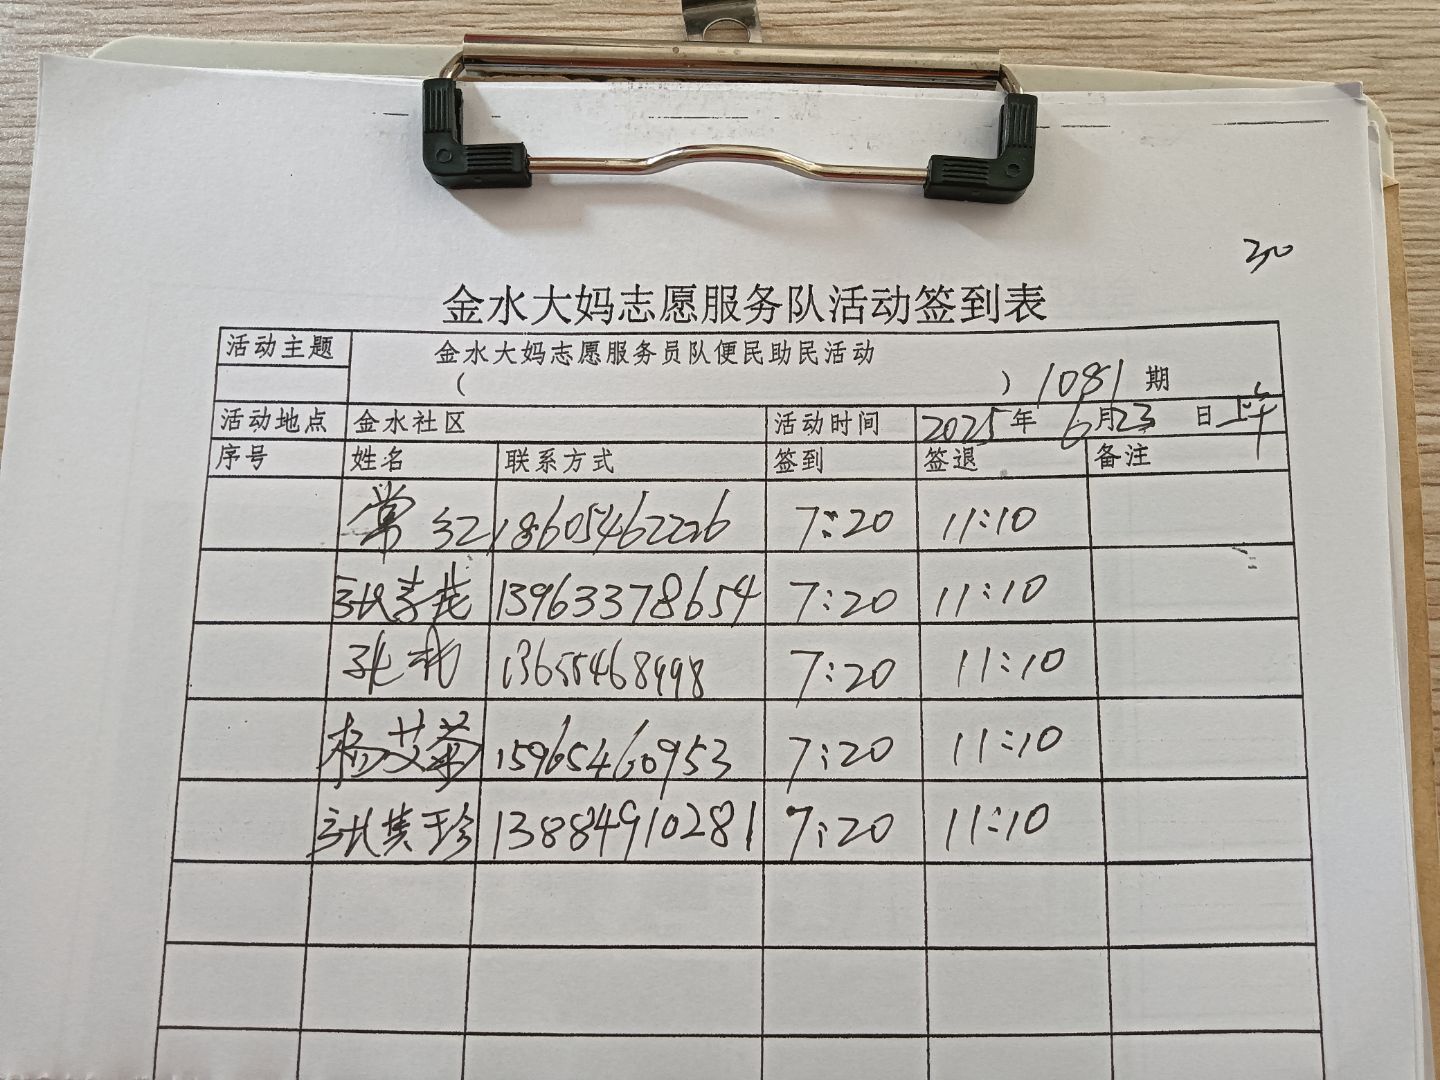 30
金水大妈志愿服务队活动签到表
活动主题 金水大妈志愿服务员队便民助民活动
( ) 1081 期
活动地点 金水社区 活动时间 2025年 6月23 日上午
序号 姓名 联系方式 签到 签退 备注
常红 18605462226 7:20 11:10
张 13963378654 7:20 11:10
张 13655468998 7:20 11:10
杨艾菊 15965460953 7:20 11:10
张其珍 13884910281 7:20 11:10